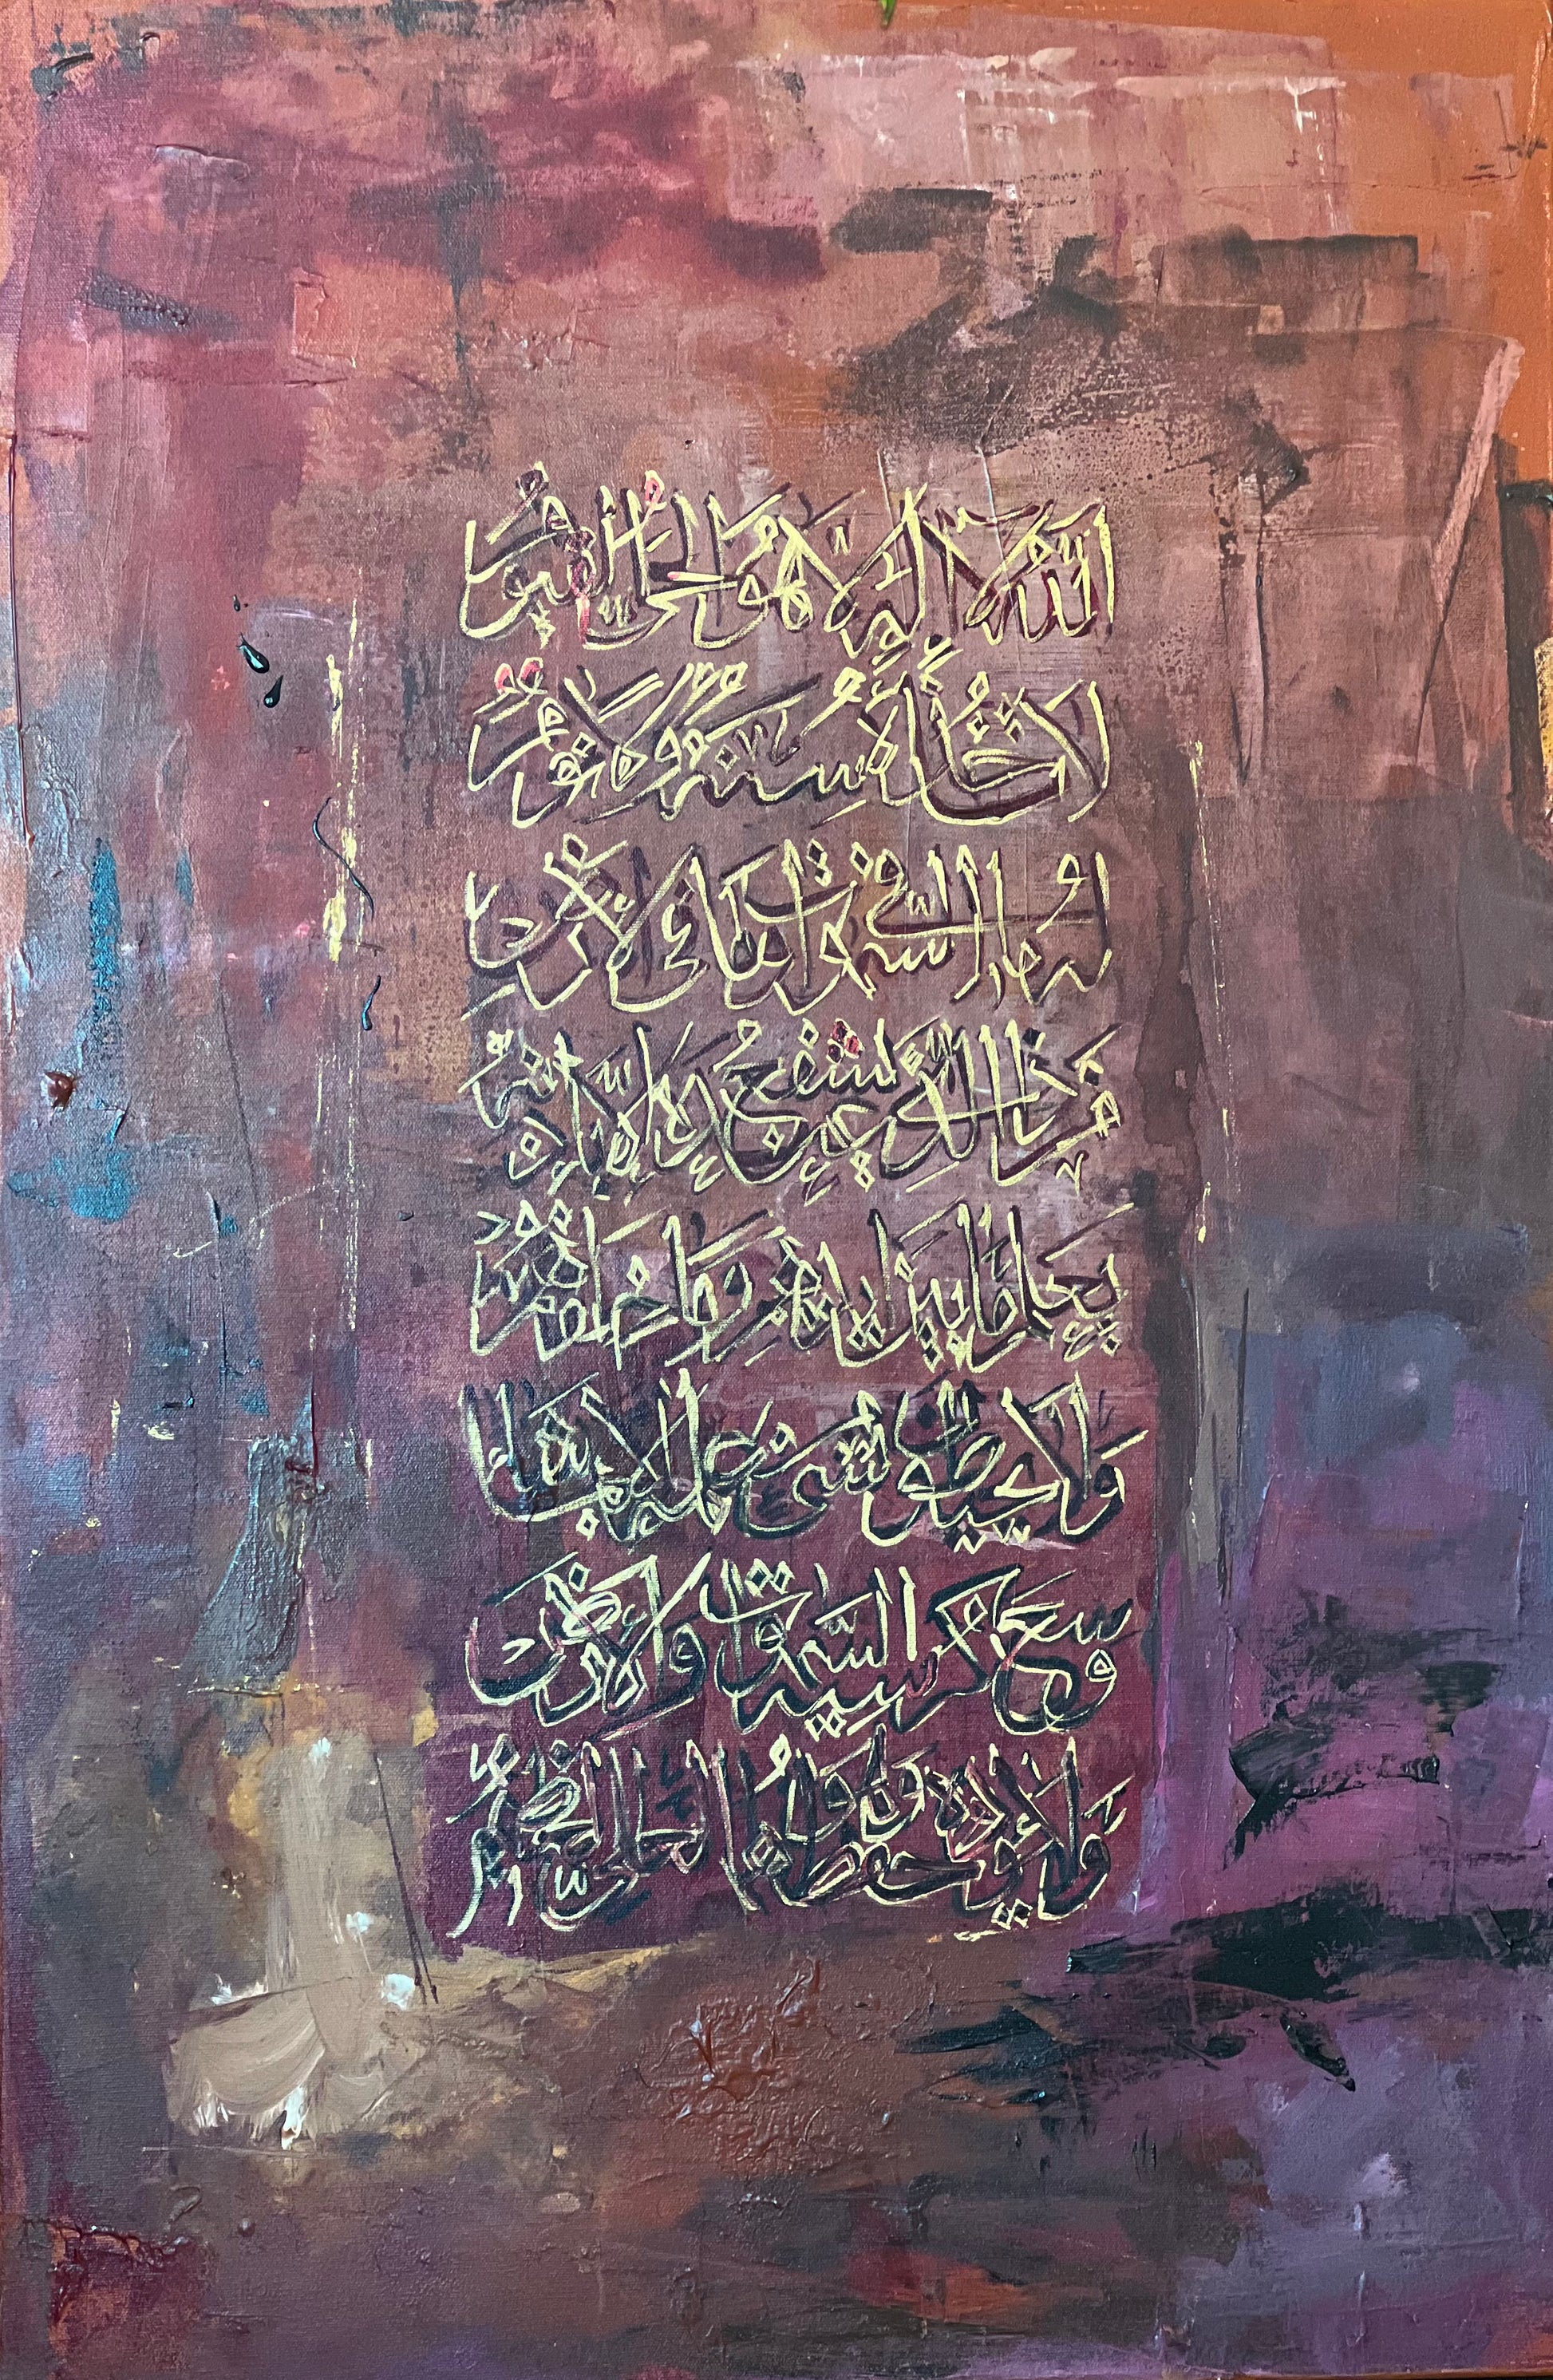 الله لا إله إلا هو الحي القيوم
لا تأخذه سنة ولا نوم
له ما في السموات وما في الأرض
من ذا الذي يشفع عنده إلا بإذنه
يعلم ما بين أيديهم وما خلفهم
ولا يحيطون بشيء من علمه إلا بما شاء
وسع كرسيه السموات والأرض
ولا يؤده حفظهما وهو العلي العظيم